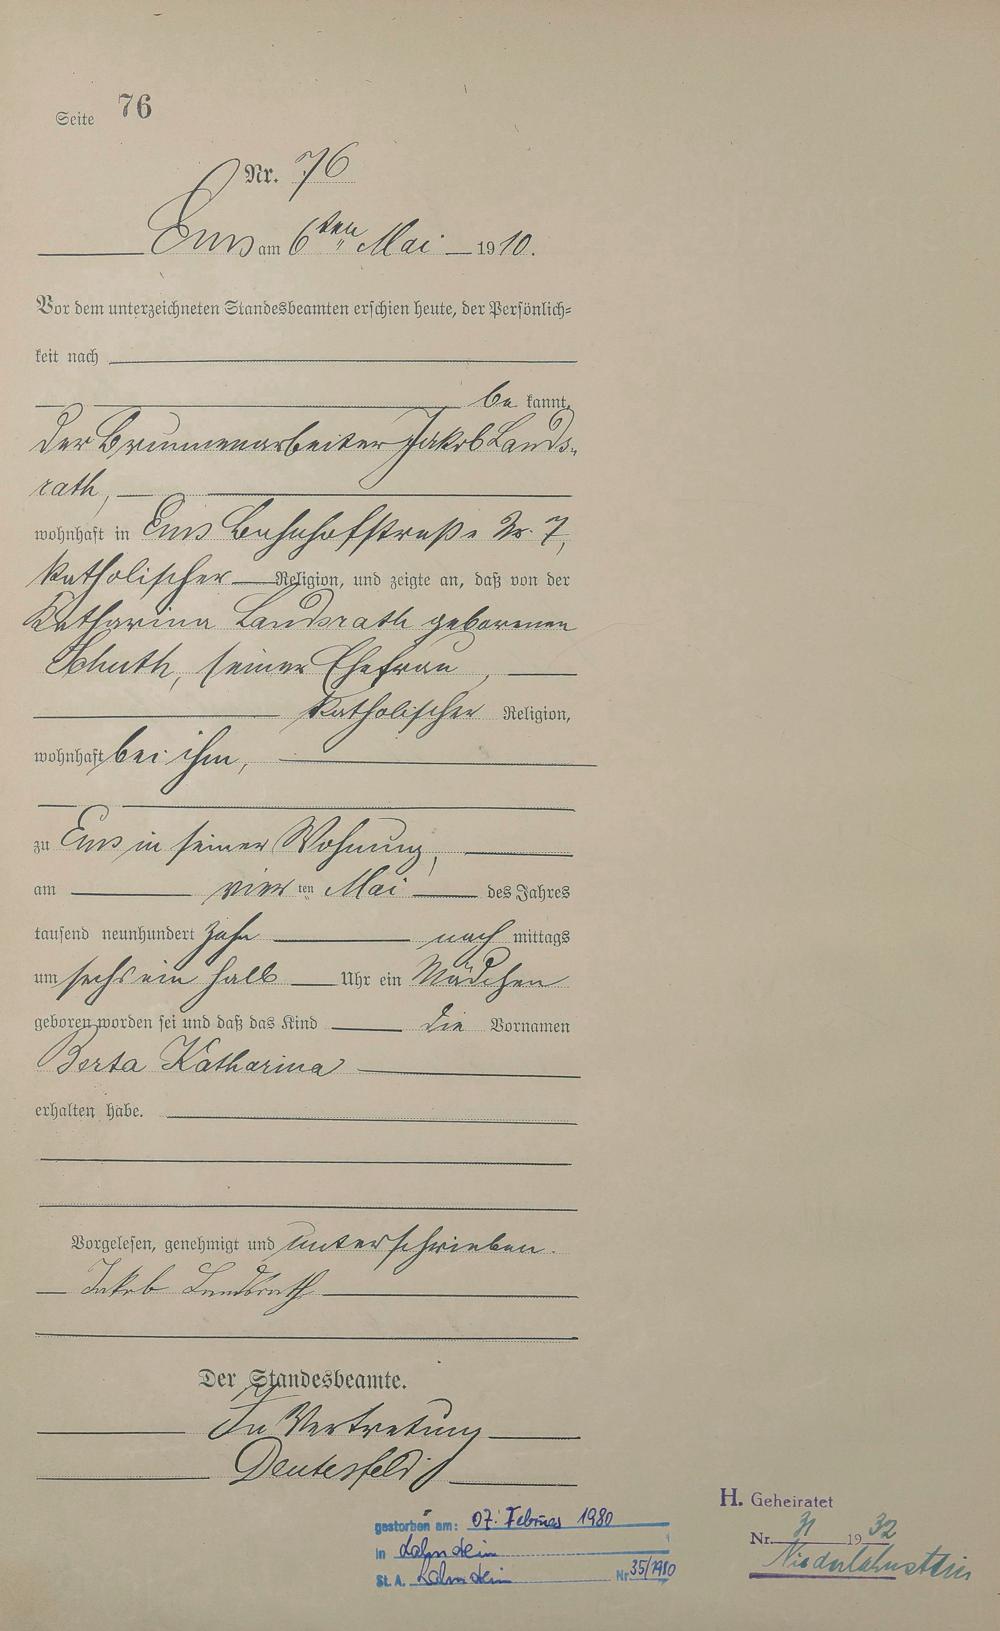 Seite 76
Nr. 76
Ems am 6ten Mai 1910.
Vor dem unterzeichneten Standesbeamten erschien heute, der Persönlich=
keit nach
be kannt,
der Brunnenarbeiter Jakob Lands-
rath,
wohnhaft in Ems Bahnhofstraße Nr. 7,
katholischer Religion, und zeigte an, daß von der
Katharina Landsrath geborenen
Schuth, seiner Ehefrau,
katholischer Religion,
wohnhaft bei ihm,
zu Ems in seiner Wohnung,
am vier ten Mai des Jahres
tausend neunhundert zehn nach mittags
um sechs ein halb Uhr ein Mädchen
geboren worden sei und daß das Kind die Vornamen
Berta Katharina
erhalten habe.
Vorgelesen, genehmigt und unterschrieben.
Jakob Landsrath
Der Standesbeamte.
In Vertretung
Deutesfeld
gestorben am: 07. Februar 1980
in Lahnstein
St. A. Lahnstein Nr 35/1980
H. Geheiratet
Nr. 31 1932
Niederlahnstein